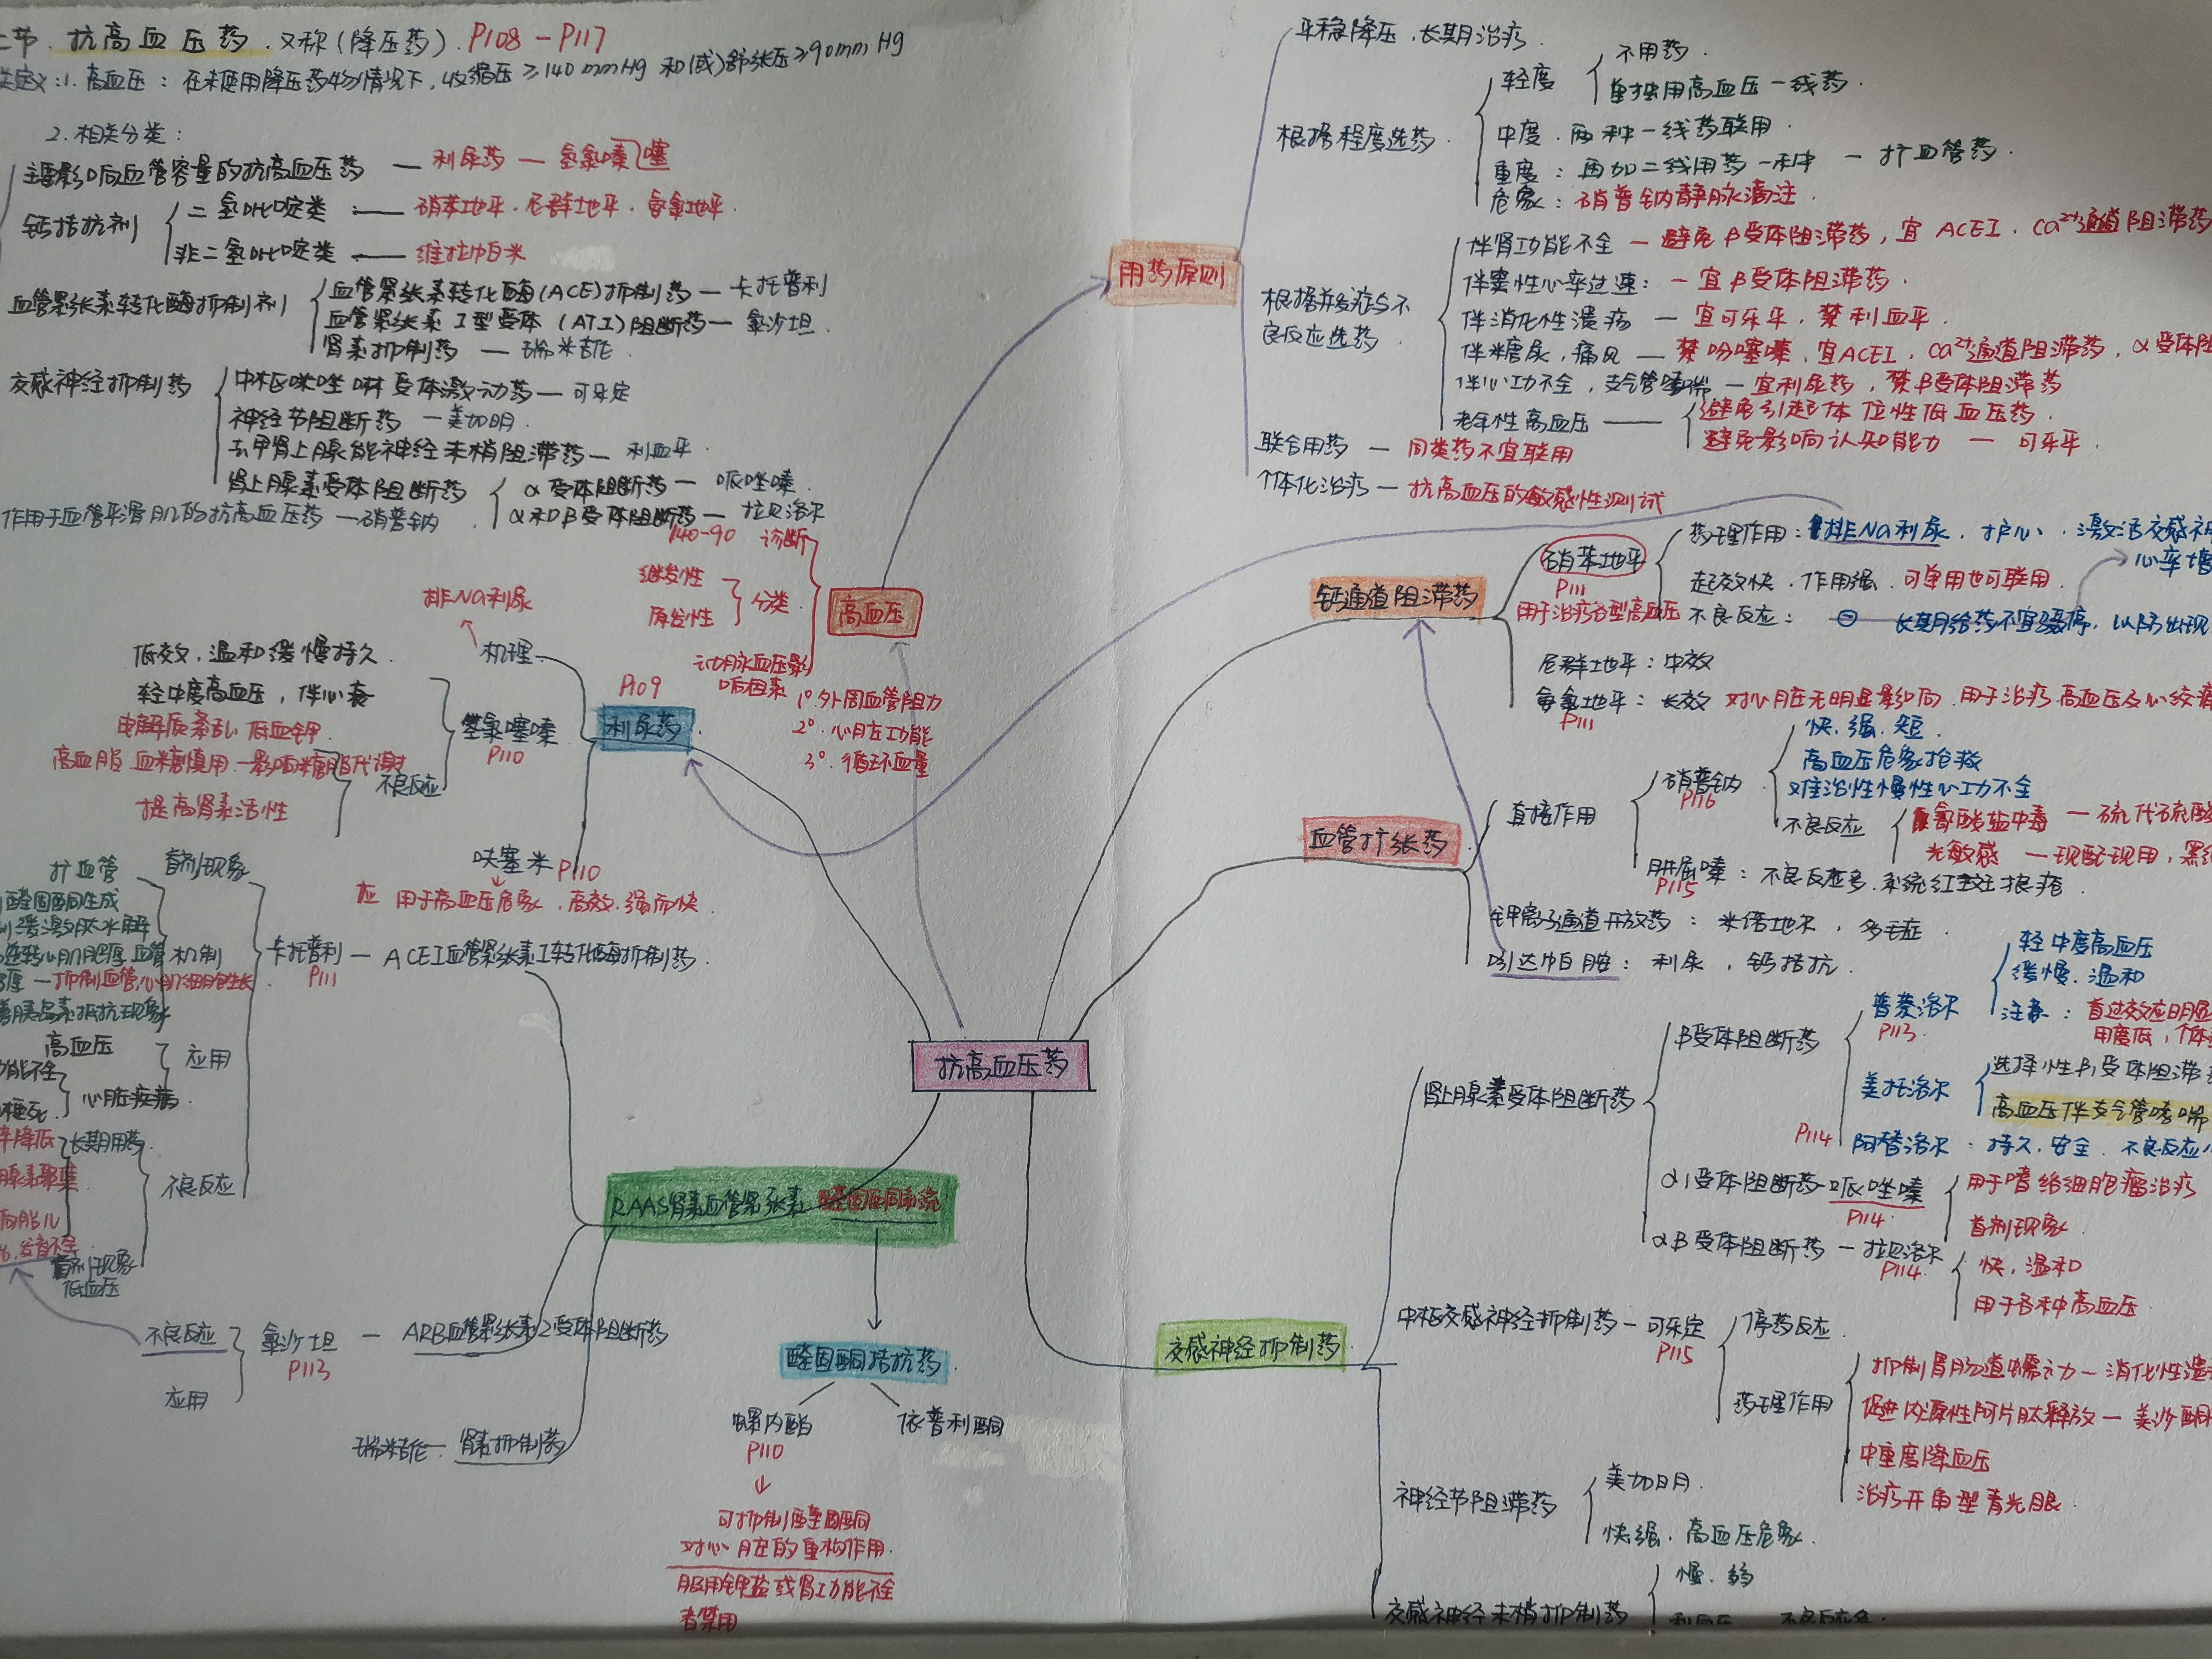 节. 抗高血压药. 又称(降压药). P108-P117
定义:1. 高血压: 在未使用降压药物情况下, 收缩压≥140mmHg 和(或)舒张压≥90mmHg
2. 相关分类:
主要影响血管容量的抗高血压药 — 利尿药 — 氢氯噻嗪
钙拮抗剂
二氢吡啶类 — 硝苯地平. 尼群地平. 氨氯地平.
非二氢吡啶类 — 维拉帕米
血管紧张素转化酶抑制剂
血管紧张素转化酶(ACE)抑制药 — 卡托普利
血管紧张素I型受体(ATI)阻断药 — 氯沙坦.
肾素抑制药 — 瑞米吉伦.
交感神经抑制药
中枢咪唑啉受体激动药 — 可乐定
神经节阻断药 — 美加明.
去甲肾上腺能神经末梢阻滞药 — 利血平.
肾上腺素受体阻断药
α受体阻断药 — 哌唑嗪.
α和β受体阻断药 — 拉贝洛尔
作用于血管平滑肌的抗高血压药 — 硝普钠
用药原则
平稳降压, 长期治疗.
根据程度选药
轻度
不用药.
单独用高血压一线药.
中度. 两种一线药联用.
重度: 再加二线用药一种 — 扩血管药.
危象: 硝普钠静脉滴注.
根据并发症与不良反应选药.
伴肾功能不全 — 避免β受体阻滞药, 宜ACEI. Ca²⁺通道阻滞药
伴窦性心率过速: — 宜β受体阻滞药.
伴消化性溃疡 — 宜可乐平, 禁利血平.
伴糖尿, 痛风 — 禁吩噻嗪, 宜ACEI, Ca²⁺通道阻滞药, α受体阻
伴心功不全, 支气管哮喘 — 宜利尿药, 禁β受体阻滞药
老年性高血压
避免引起体位性低血压药.
避免影响认知能力 — 可乐平.
联合用药 — 同类药不宜联用
个体化治疗 — 抗高血压的敏感性测试
高血压
140-90 诊断
继发性
原发性
分类
动脉血压影响因素
1° 外周血管阻力
2° 心脏功能
3° 循环血量
利尿药
P109
机理
排Na利尿
氢氯噻嗪
P110
低效, 温和缓慢持久.
轻中度高血压, 伴心衰
不良反应
电解质紊乱 低血钾.
高血脂. 血糖慎用 — 影响糖脂代谢
提高肾素活性
呋塞米 P110
应 用于高血压危象. 高效. 强而快.
钙通道阻滞药
硝苯地平
P111
用于治疗各型高血压
药理作用: 排Na利尿. 护心. 激活交感神
心率增
起效快. 作用强. 可单用也可联用.
不良反应: 长期给药不宜骤停, 以防出现
尼群地平: 中效
氨氯地平: 长效 对心脏无明显影响. 用于治疗高血压及心绞痛
P111
血管扩张药
直接作用
硝普钠
P116
快. 强. 短.
高血压危象抢救
难治性慢性心功不全
不良反应
氰酸盐中毒 — 硫代硫酸
光敏感 — 现配现用, 黑纸
肼屈嗪: 不良反应多. 系统红斑狼疮.
P115
钾离子通道开放药: 米诺地尔, 多毛症.
吲达帕胺: 利尿, 钙拮抗.
抗高血压药
RAAS肾素血管紧张素醛固酮系统
卡托普利 — ACEI血管紧张素I转化酶抑制药.
P111
首剂现象
机制
扩血管
醛固酮生成
缓激肽水解
逆转心肌肥厚. 血管
厚 — 抑制血管, 心肌细胞生长
善胰岛素抵抗现象
应用
高血压
功能不全
梗死
心脏疾病.
不良反应
长期用药.
率降低
腺素聚集
首剂现象
低血压
氯沙坦 — ARB血管紧张素2受体阻断药
P113
不良反应
应用
瑞米吉伦 — 肾素抑制药
醛固酮拮抗药.
螺内酯
P110
依普利酮
可抑制醛固酮
对心脏的重构作用.
服用钾盐或肾功能不全
者禁用
交感神经抑制药
肾上腺素受体阻断药
β受体阻断药
普萘洛尔
P113
轻中度高血压
缓慢. 温和
注意: 首过效应明显
用度低, 个体
美托洛尔
选择性β₁受体阻滞
高血压伴支气管哮喘
阿替洛尔: 持久. 安全. 不良反应小
P114
α1受体阻断药 — 哌唑嗪
P114.
用于嗜铬细胞瘤治疗
首剂现象
αβ受体阻断药 — 拉贝洛尔
P114.
快, 温和
用于各种高血压.
中枢交感神经抑制药 — 可乐定
P115
停药反应.
药理作用
抑制胃肠道蠕动 — 消化性溃
促进内源性阿片肽释放 — 美沙酮
中重度降血压
治疗开角型青光眼.
神经节阻滞药
美加明.
快强. 高血压危象.
交感神经末梢抑制药
慢. 弱
利血压 不良反应多.